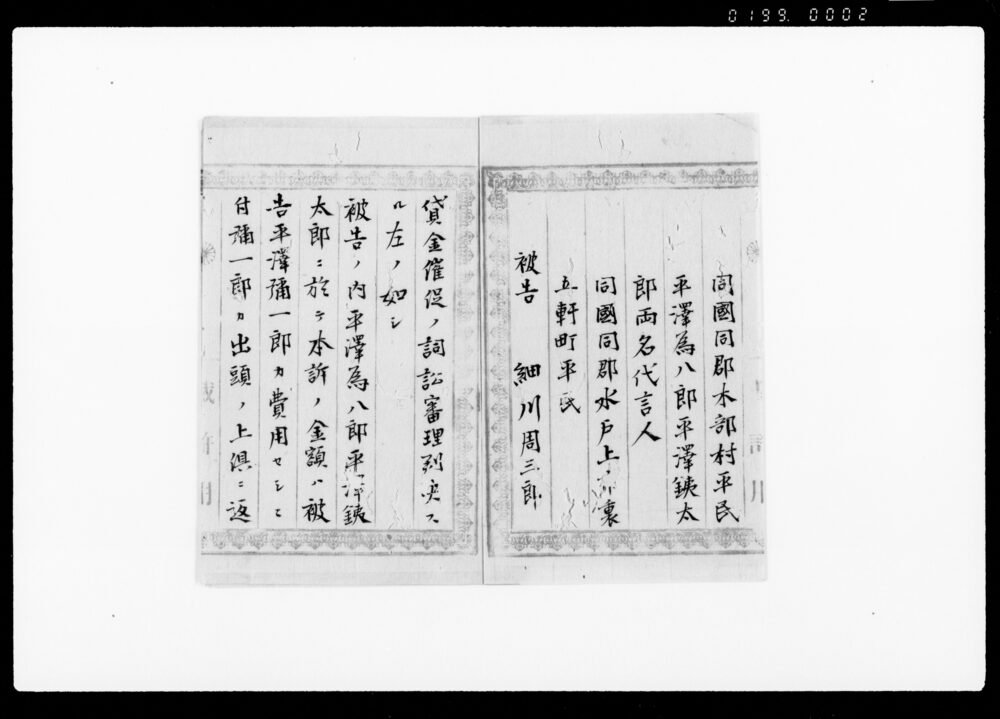 0199. 0002
同國同郡木部村平民
平澤為八郎平澤銕太
郎両名代言人
同國同郡水戸上市裏
五軒町平民
被告 細川周三郎
貸金催促ノ詞訟審理判决ス
ル左ノ如シ
被告ノ内平澤為八郎平澤銕
太郎ニ於テ本訴ノ金額ハ被
告平澤彌一郎カ費用セシニ
付彌一郎カ出頭ノ上倶ニ返